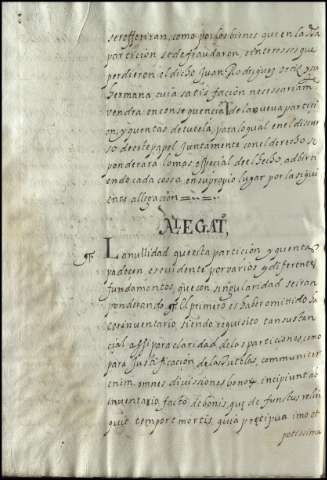 se offeriran, como por los bienes que en la dha
particion se defraudaron, e interesses que
perdieron el dicho Juan Rodriguez y su
hermana cuia satisfacion necessariam
vendra en consequencia de la nueva particion
y quentas de tutela, para lo qual en el discur
so de este papel juntamente con el derecho se
pondera lo mas essencial de el hecho, advirti
endo cada cossa en su propio lugar por la sigui
ente allegacion
ALEGAT,
La nullidad que esta particion, y quenta
padecen es evidente por varios y diferentes
fundamentos, que con singularidad se iran
ponderando. El primero es haber omitido ha
cer inventario, siendo requisito tan sustan
cial assi para claridad de las particiones, como
para justificacion de las tutelas, communiter
enim omnes divissiones bonor incipiunt ab
inventario facto de bonis, que defunctus reli
quit tempore mortis, quia precipua imo et
potissima